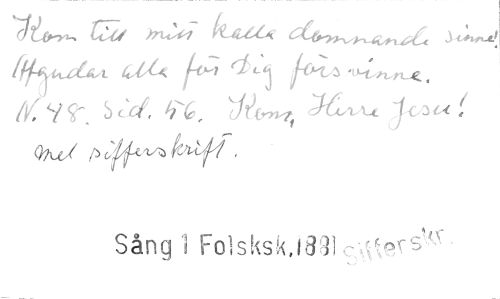 Kom till mitt kalla domnande sinne!
Afgudar alla för Dig försvinne.
N. 48. Sid. 56. Kom, Herre Jesu!
med sifferskrift.
Sång 1 Folsksk.1881 Sifferskr.